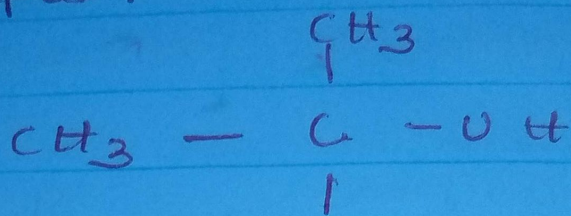 CH3
|
CH3 — C — OH
|